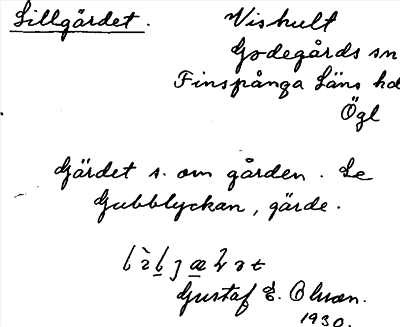 Lillgärdet. Vishult
Godegårds sn
Finspånga Läns hd
Ögl
Gärdet s. om gården. Se
Gubblyckan, gärde.
Gustaf E. Olsson.
1930.